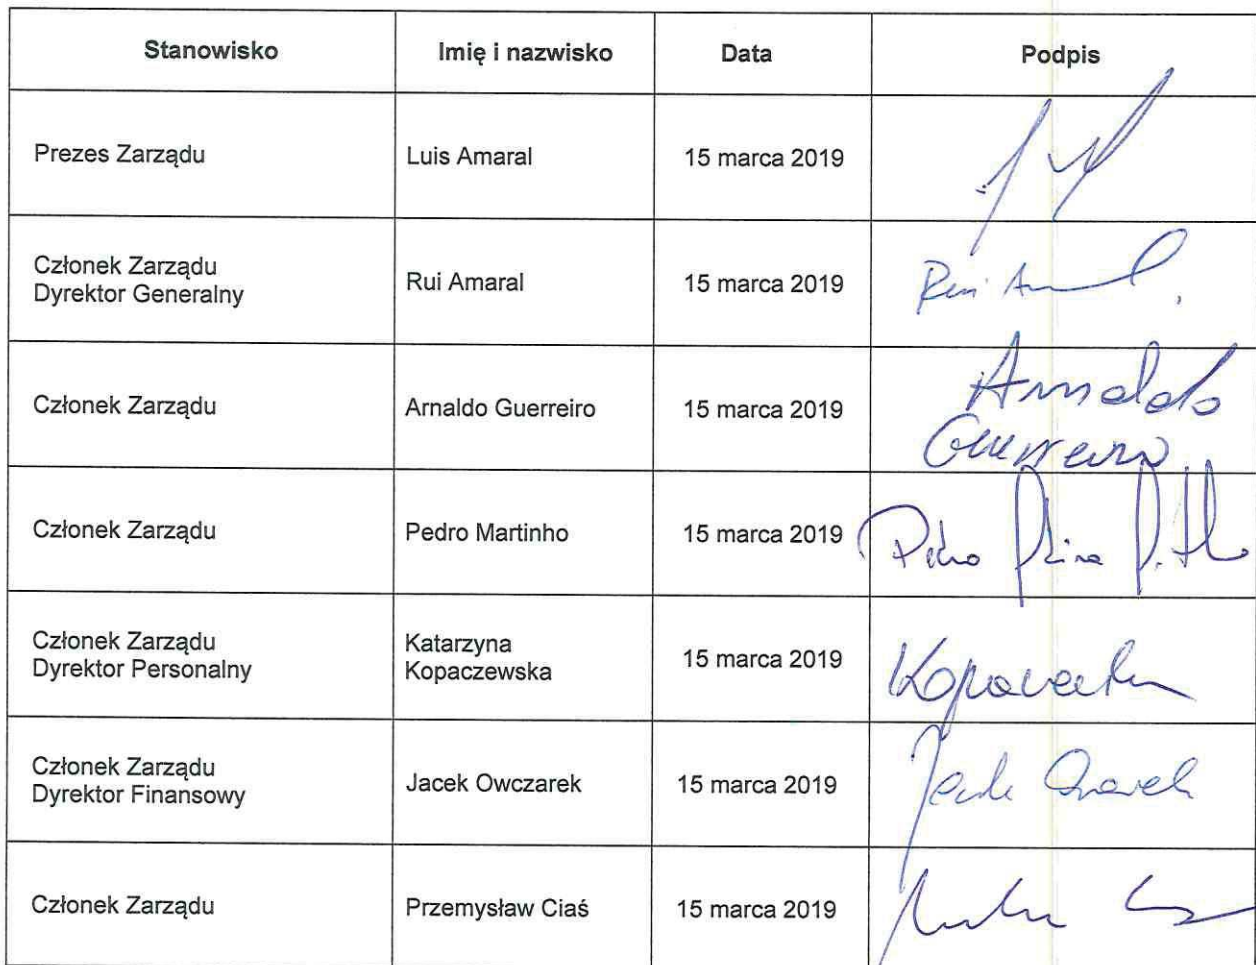 Stanowisko Imię i nazwisko Data Podpis
Prezes Zarządu Luis Amaral 15 marca 2019
Członek Zarządu
Dyrektor Generalny Rui Amaral 15 marca 2019 Rui
Członek Zarządu Arnaldo Guerreiro 15 marca 2019 Arnaldo
Guerreiro
Członek Zarządu Pedro Martinho 15 marca 2019
Członek Zarządu
Dyrektor Personalny Katarzyna
Kopaczewska 15 marca 2019
Członek Zarządu
Dyrektor Finansowy Jacek Owczarek 15 marca 2019
Członek Zarządu Przemysław Ciaś 15 marca 2019